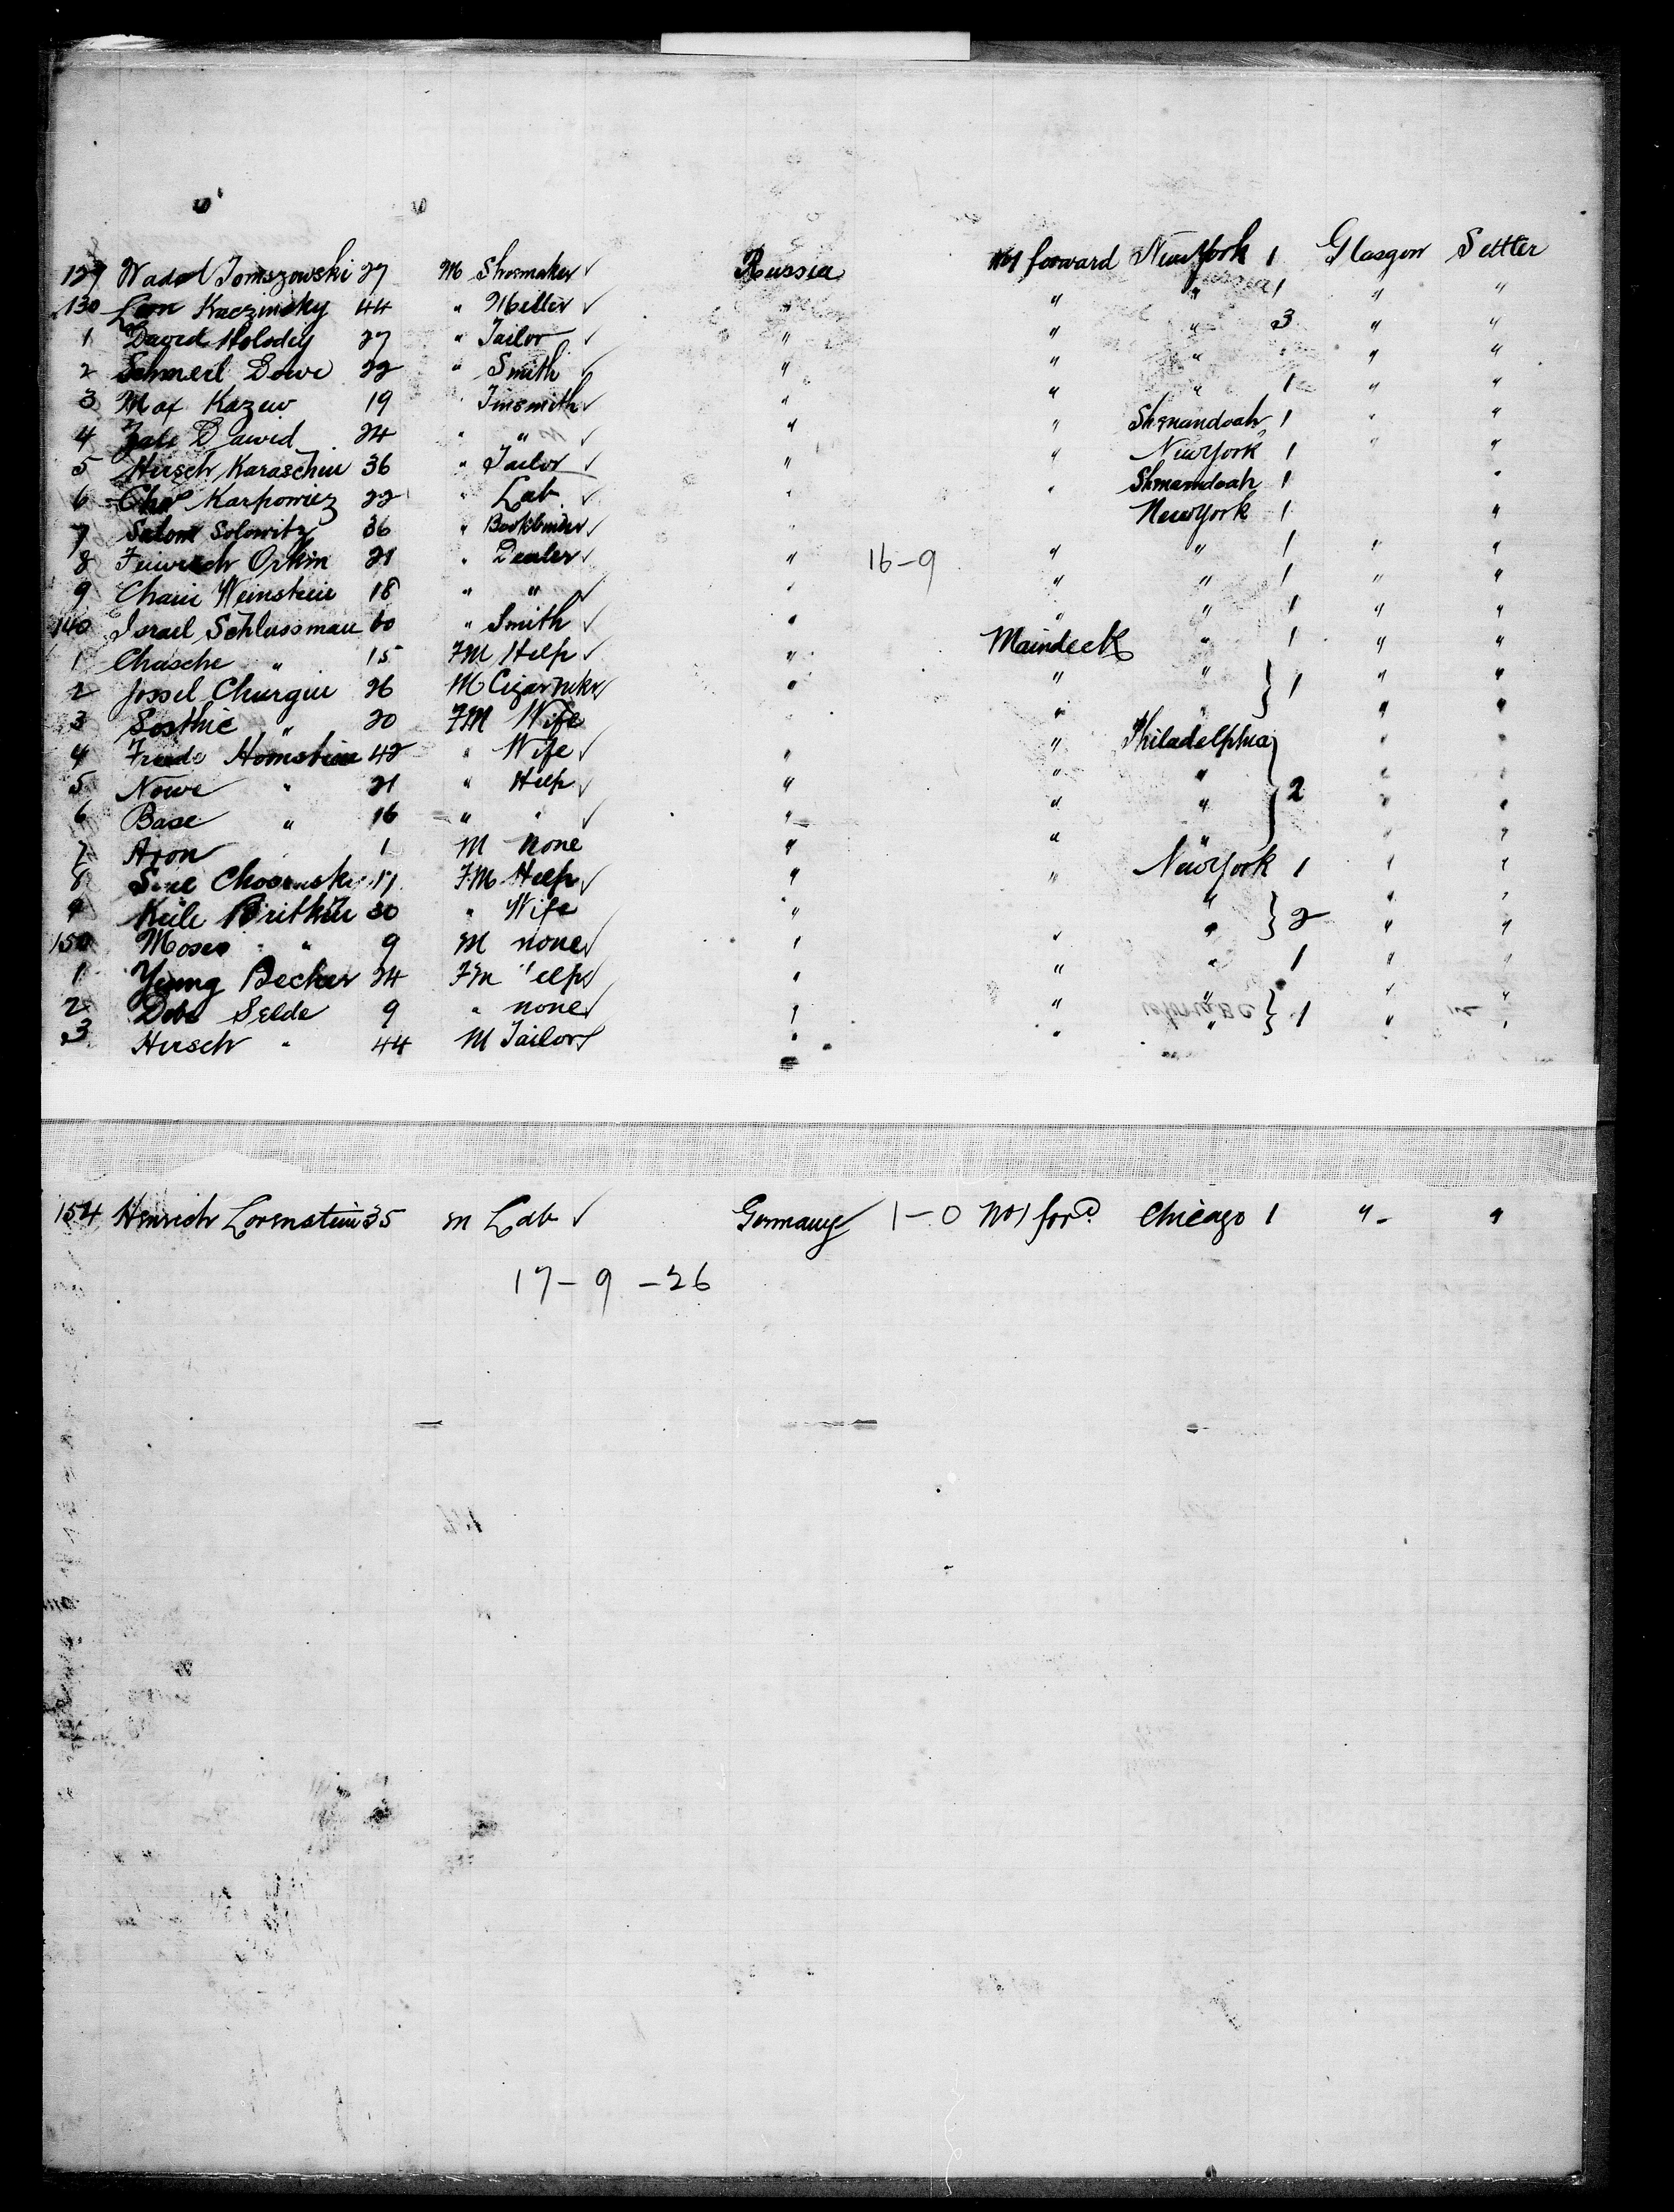 129 Wadel Tomszowski 27 M Shoemaker ✓ Russia No1 forward New York 1 Glasgow Settler
130 Leon Kaczinsky 44 " Meller ✓ " " " 1 " "
1 David Holodey 27 " Tailor ✓ " " " 3 " "
2 Schmerl Dowe 22 " Smith ✓ " " " " "
3 Max Kazew 19 " Tinsmith ✓ " " " 1 " "
4 Dawed 24 " " ✓ " " Shenandoah 1 " "
5 Hirsch Karaschin 36 " Tailor ✓ " " New York 1 " "
6 Karpowicz 22 " Lab ✓ " " Shenandoah 1 "
7 Salom Solowitz 36 " Bookbinder ✓ " New York 1 "
8 Orkin 21 " Dealer ✓ " 16-9 " " 1 " "
9 Chaim Weinstein 18 " " ✓ " " " 1 " "
140 Israel Schlussman 60 " Smith ✓ " " " 1 " "
1 Chasche " 15 FM Help ✓ " Maindeck " 1 " "
2 Jossel Churgin 26 M Cigar mkr ✓ " " " } 1 " "
3 " 20 FM Wife " " " " "
4 Homstein 42 " Wife ✓ " " Philadelphia } " "
5 Nowe " 21 " Help ✓ " " " 2 " "
6 Base " 16 " " ✓ " " " " "
7 Aron " 1 M none " " " " "
8 17 FM Help ✓ " " New York 1 " "
9 Keile Britkin 30 " Wife " " } 2 " "
150 Moses " 9 M none ✓ " " " " "
1 Becker 24 FM Help ✓ " " " 1 " "
2 Selde 9 " none ✓ " " " } 1 " "
3 Hirsch " 44 M Tailor ✓ " " " " "
154 Henrich Lorenstein 35 m Lab ✓ Germany 1-0 No1 forwd. Chicago 1 " "
17-9-26